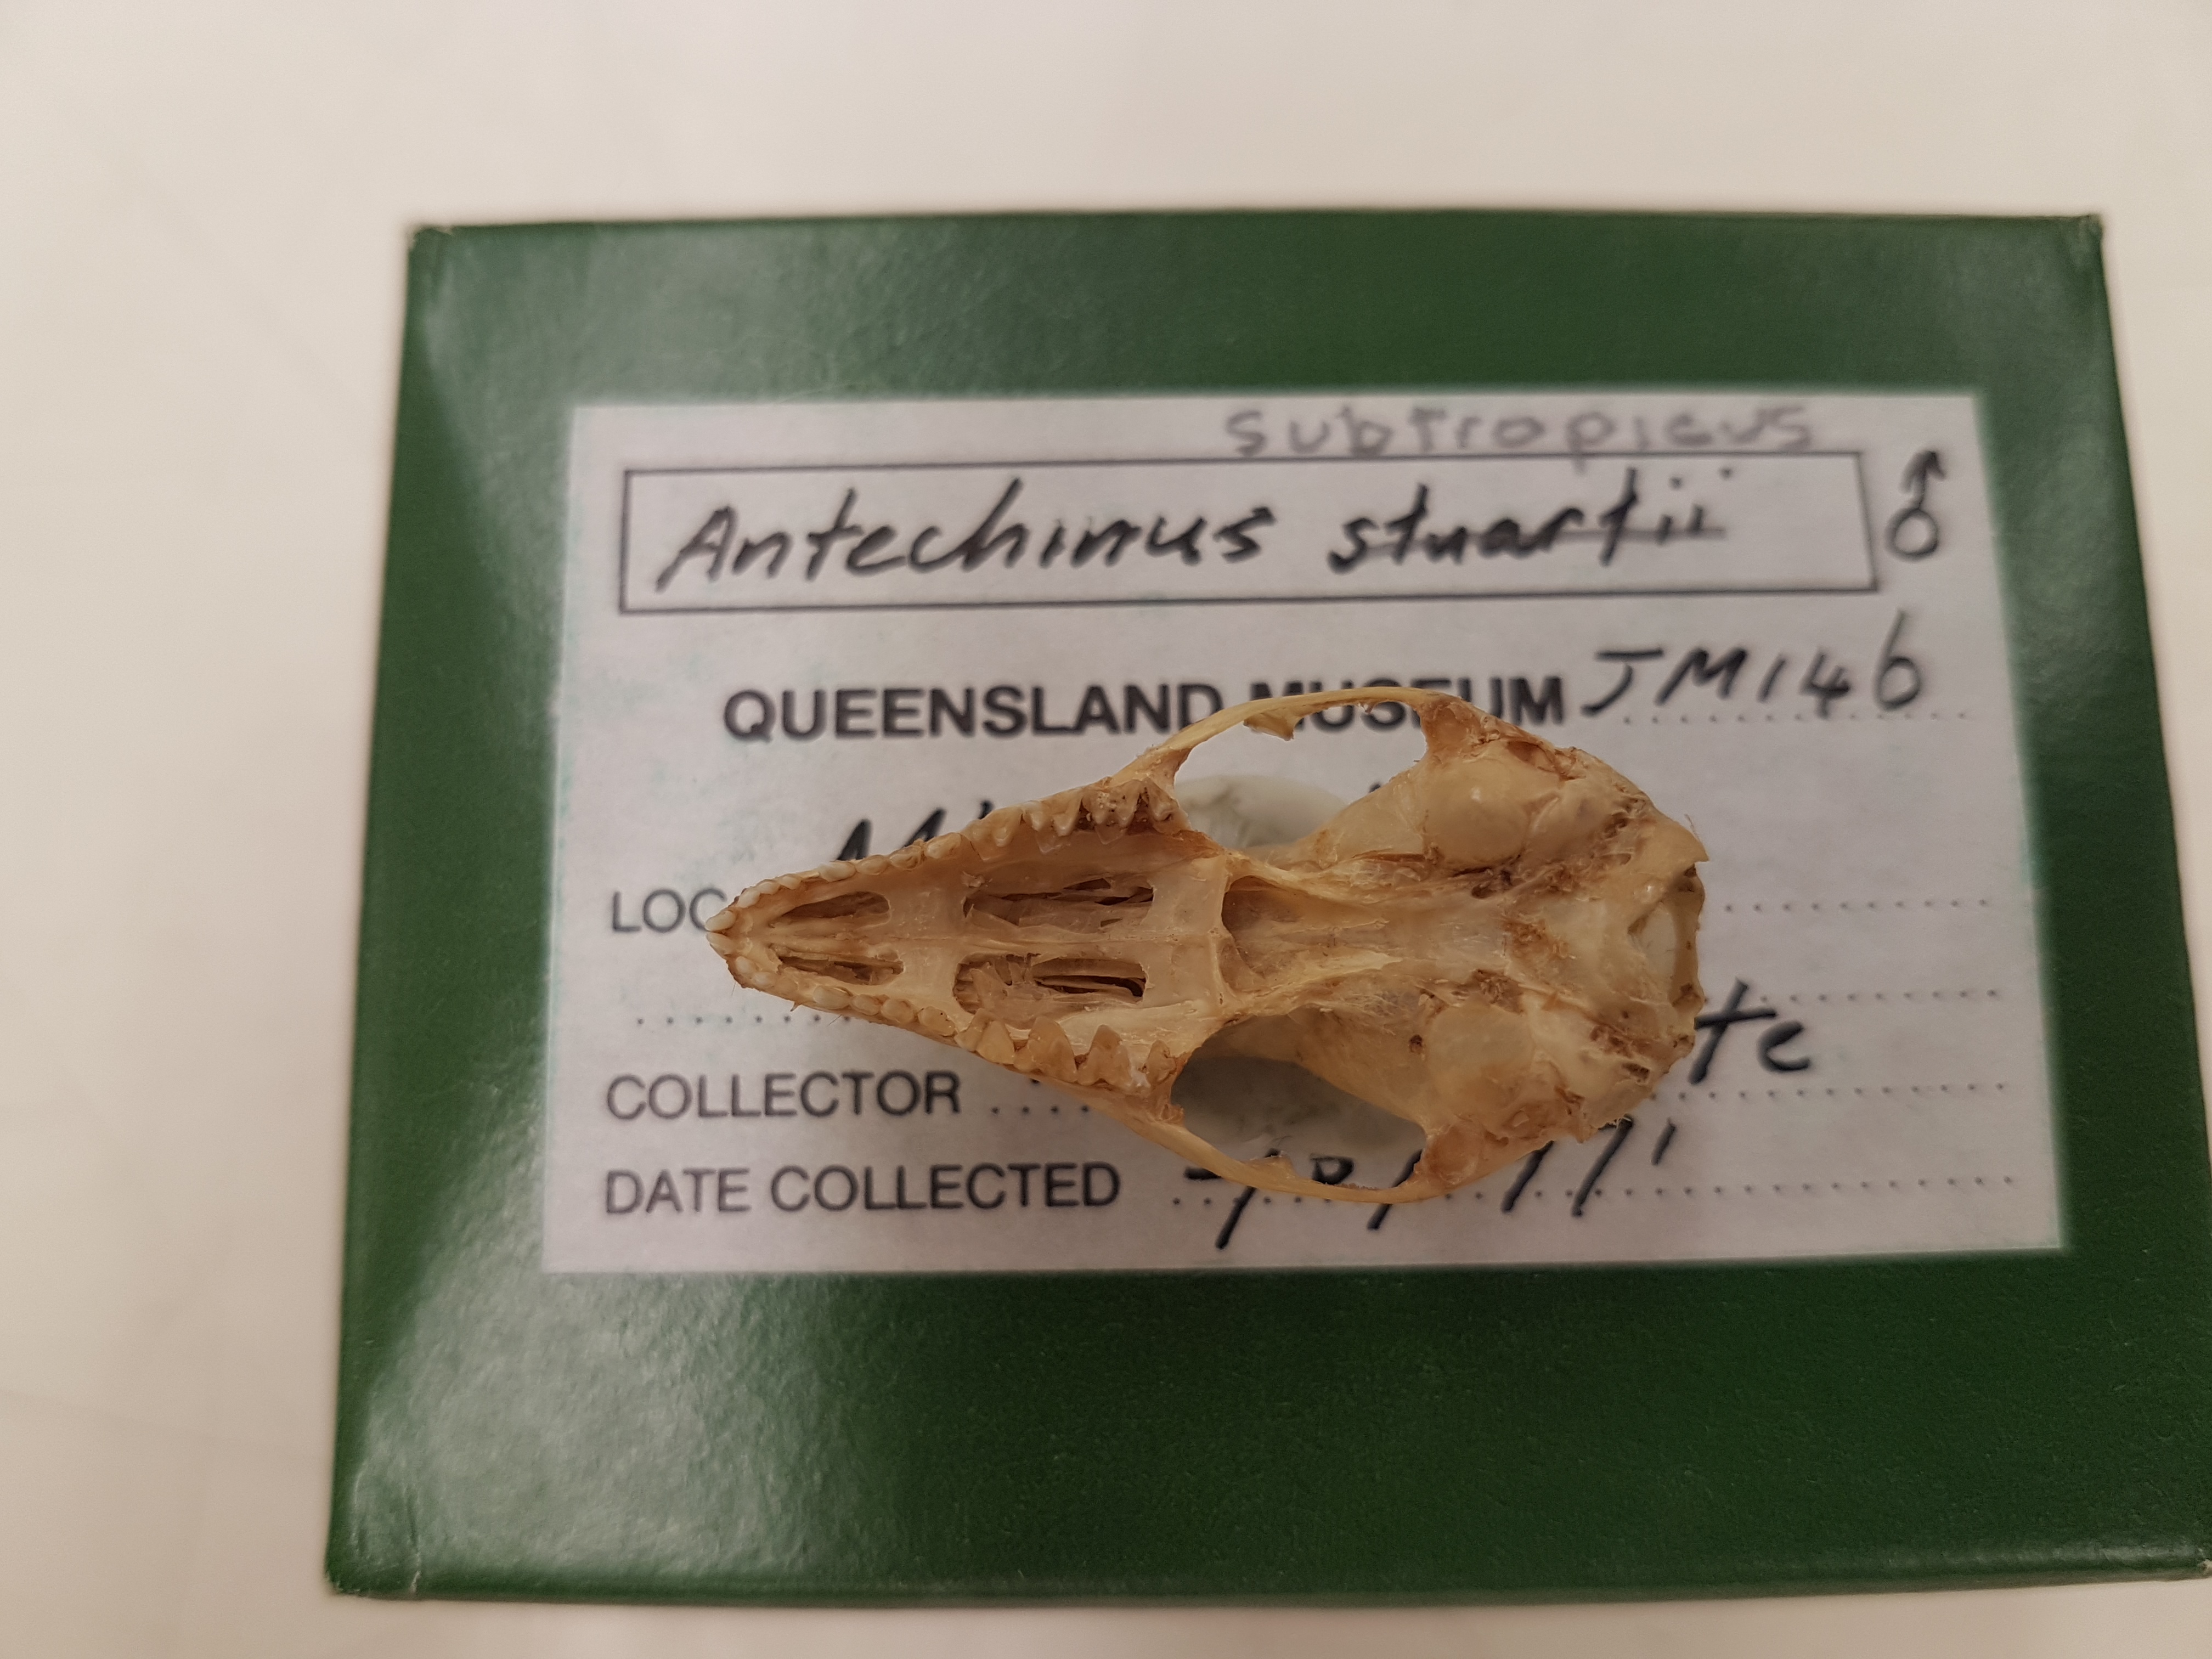 subtropicus
Antechinus stuartii ♂
QUEENSLAND MUSEUM JM1146
LOC
COLLECTOR
DATE COLLECTED